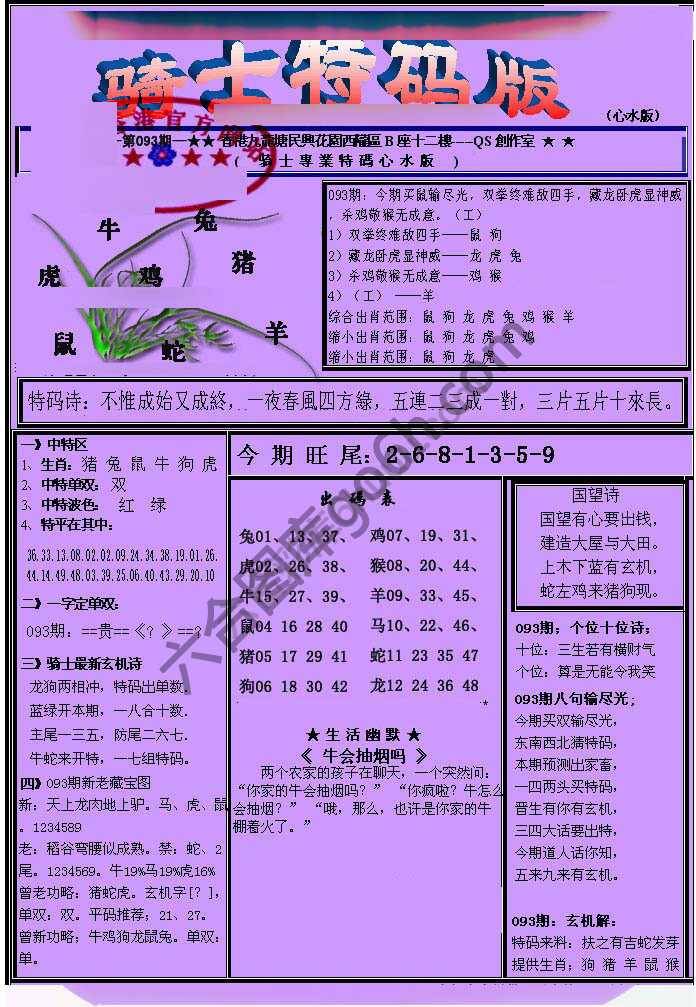 骑士特码版
(心水版)
港官方
第093期—★★ 香港九龍塘民興花園西福區B座十二樓----QS創作室 ★ ★
( 骑士專業特碼心水版 )
兔
牛
猪
虎
鸡
羊
鼠
蛇
093期：今期买鼠输尽光，双拳终难敌四手，藏龙卧虎显神威
，杀鸡敬猴无成意。（工）
1）双拳终难敌四手——鼠 狗
2）藏龙卧虎显神威——龙 虎 兔
3）杀鸡敬猴无成意——鸡 猴
4）（工） ——羊
综合出肖范围：鼠 狗 龙 虎 兔 鸡 猴 羊
缩小出肖范围：鼠 狗 龙 虎 兔 鸡
缩小出肖范围：鼠 狗 龙 虎
特码诗：不惟成始又成終，一夜春風四方綠，五連二三成一對，三片五片十來長。
一》中特区
1、生肖：猪 兔 鼠 牛 狗 虎
2、中特单双：双
3、中特波色： 红 绿
4、特平在其中：
36.33.13.08.02.02.09.24.34.38.19.01.26.
44.14.49.48.03.39.25.06.40.43.29.20.10
二》一字定单双：
093期：==贵==《？》==?
三》骑士最新玄机诗
龙狗两相冲，特码出单数．
蓝绿开本期，一八合十数．
主尾一三五，防尾二六七．
牛蛇来开特，一七组特码。
四》093期新老藏宝图
新：天上龙肉地上驴。马、虎、鼠
。1234589
老：稻谷弯腰似成熟。禁：蛇、2
尾。1234569。牛19%马19%虎16%
曾老功略：猪蛇虎。玄机字[？]，
单双：双。平码推荐；21、27。
曾新功略；牛鸡狗龙鼠兔。单双：
单。
今 期 旺 尾：2-6-8-1-3-5-9
出 码 表
兔01、13、37、 鸡07、19、31、
虎02、26、38、 猴08、20、44、
牛15、27、39、 羊09、33、45、
鼠04 16 28 40 马10、22、46、
猪05 17 29 41 蛇11 23 35 47
狗06 18 30 42 龙12 24 36 48
★ 生 活 幽 默 ★
《 牛会抽烟吗 》
两个农家的孩子在聊天，一个突然问：
“你家的牛会抽烟吗？” “你疯啦？牛怎么
会抽烟？” “哦，那么，也许是你家的牛
棚着火了。”
国望诗
国望有心要出钱，
建造大屋与大田。
上木下蓝有玄机，
蛇左鸡来猪狗现。
093期；个位十位诗；
十位：三生若有横财气
个位：算是无能令我笑
093期八句输尽光；
今期买双输尽光，
东南西北猜特码，
本期预测出家畜，
一四两头买特码，
晋生有你有玄机，
三四大话要出特，
今期道人话你知，
五来九来有玄机。
093期：玄机解：
特码来料：扶之有吉蛇发芽
提供生肖；狗 猪 羊 鼠 猴
六合图库go6h.com